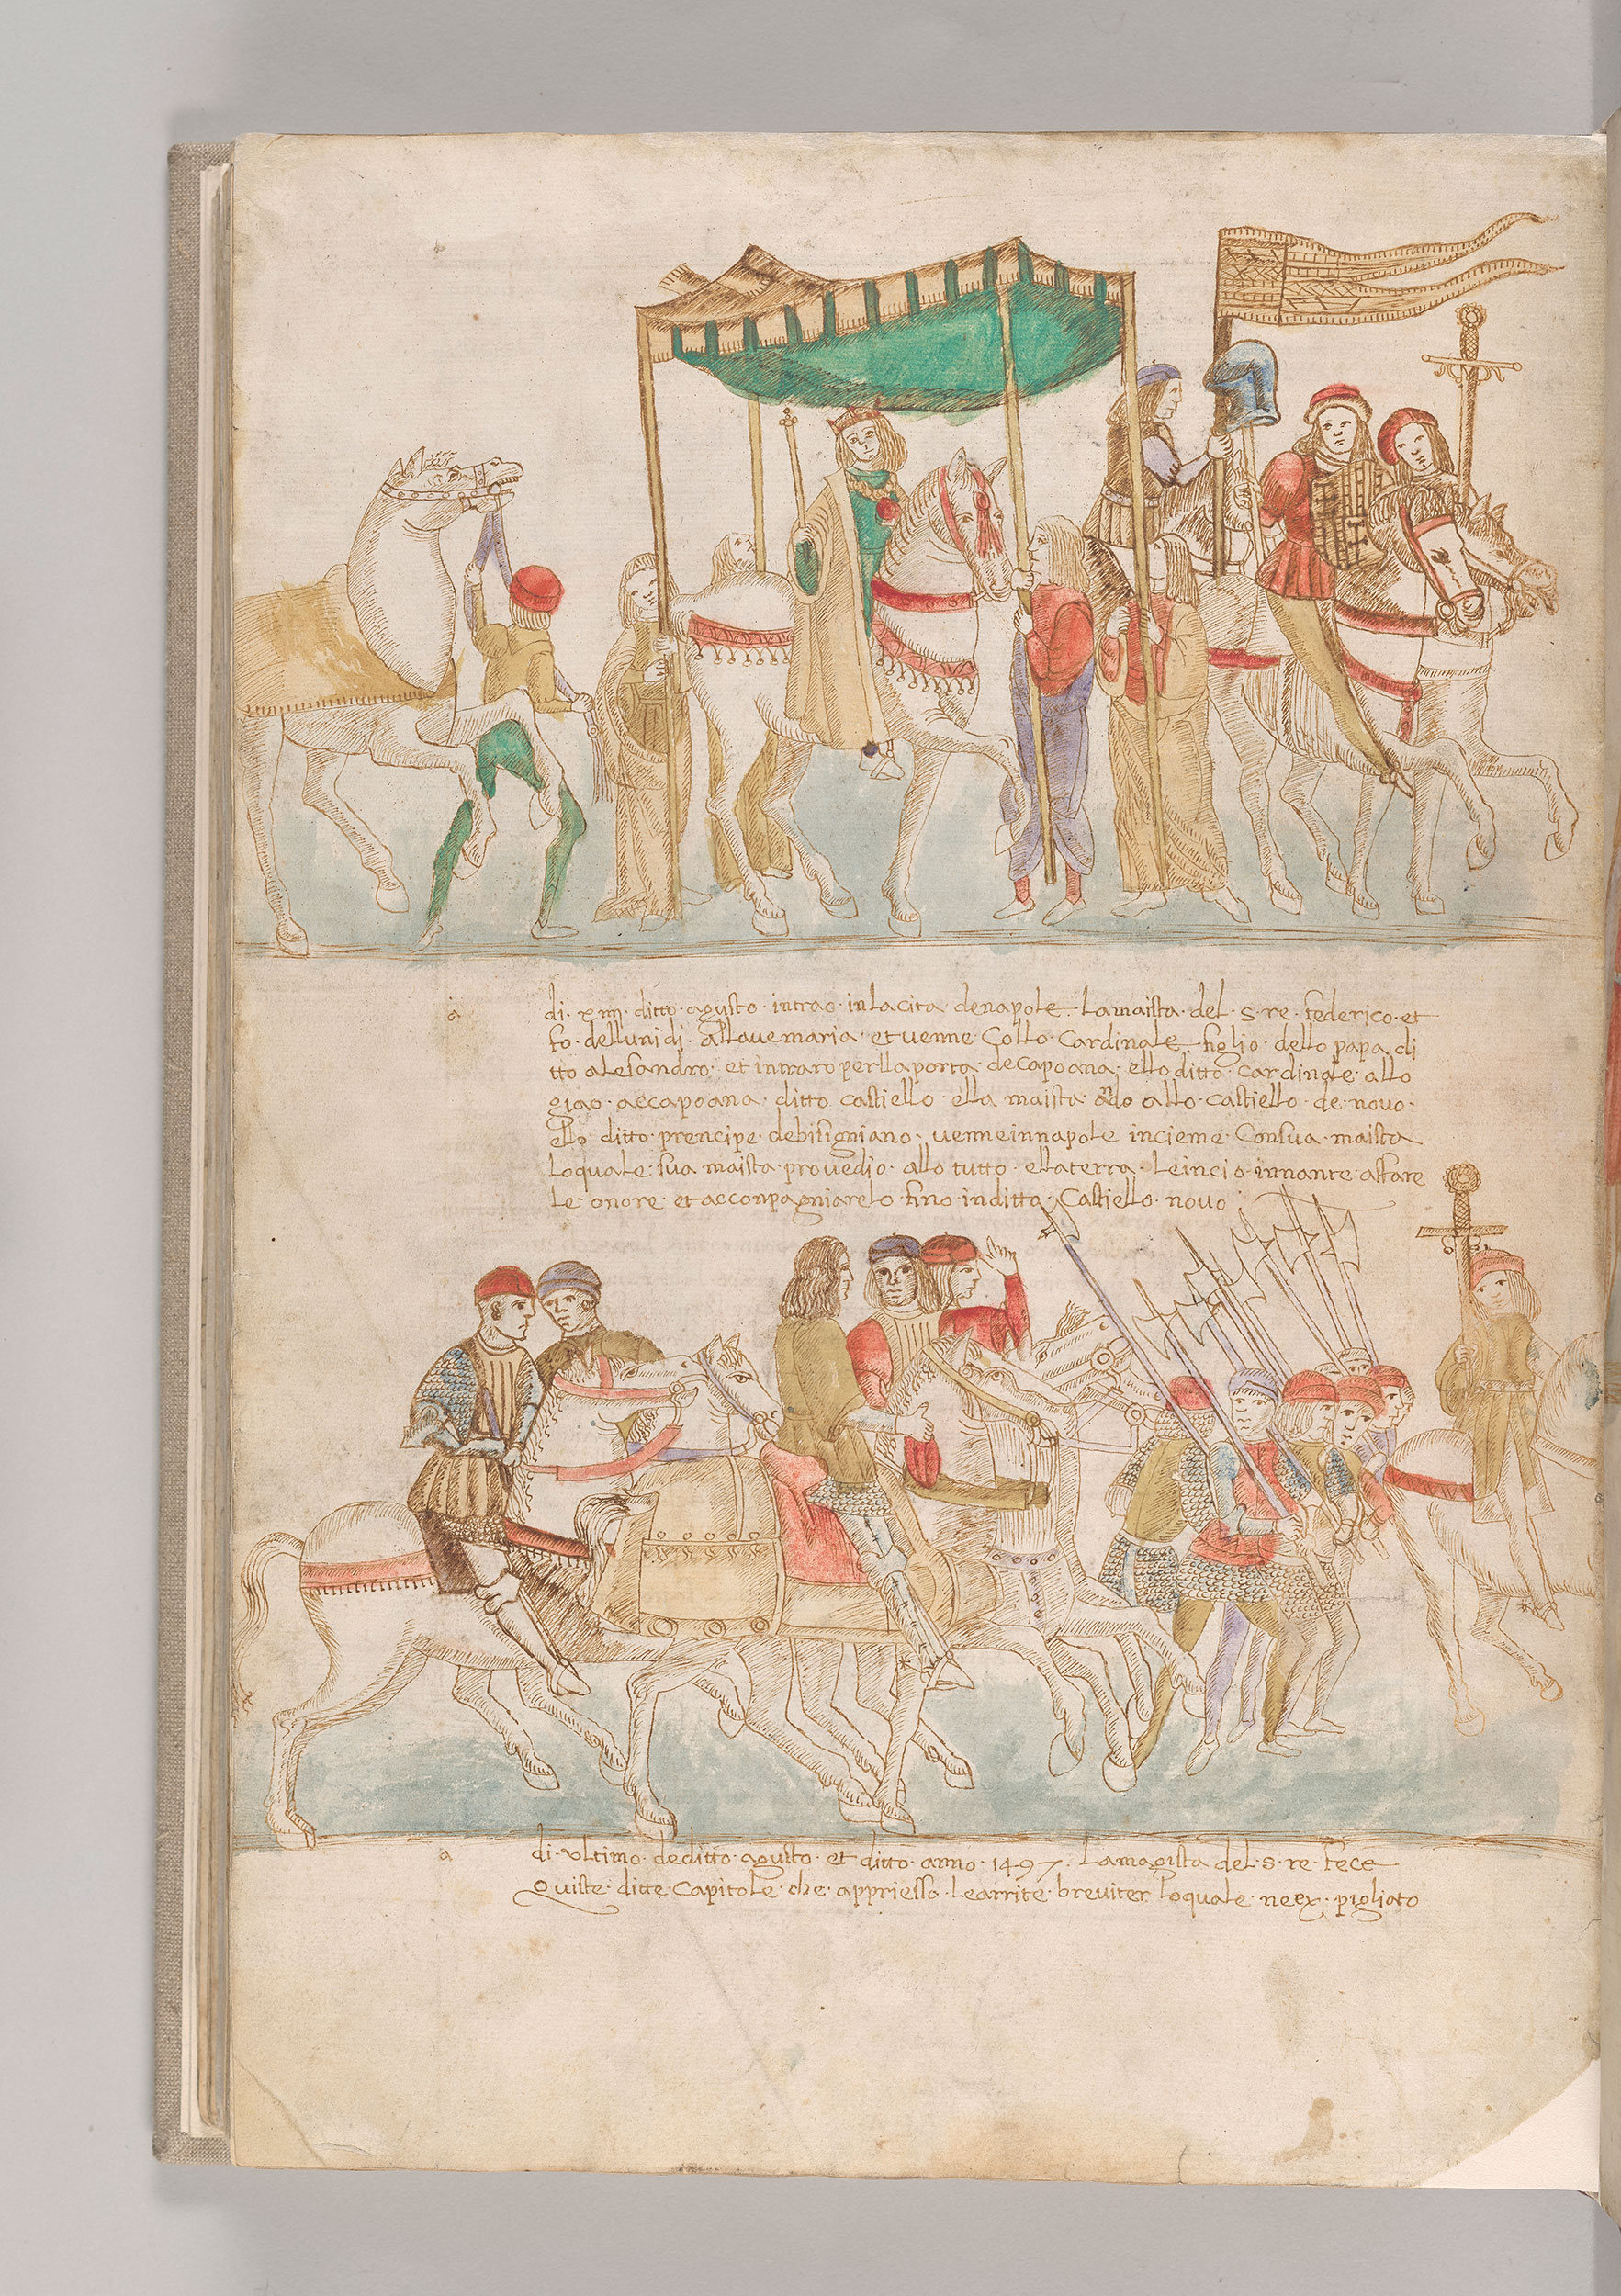 a di · xiiii · ditto · agusto · intrao · in la cita · de napole · La maista · del · S · re · federico · et
fo · dellunidi · allauemaria · et uenne · Collo · Cardinale · figlio · dello papa di
tto alesandro · et intraro per lla porta · de capoana · ello ditto · cardinale · allo
giao · accapoana · ditto castiello · ella maista · ando allo · castiello · de · nouo ·
ello · ditto · prencipe · debisigniano · uenne innapole incieme · Con sua · maista
Loquale · sua maista · prouedio · allo tutto · ella terra · Leincio · innante · affare
Le · onore · et acconpagniarelo · fino · inditto · Castiello · nouo
a di · vltimo · de ditto · agusto · et ditto · anno · 1497 · La magista del · s · re · fece
Quiste · ditte · Capitole · che · appriesso · Learrite · breuiter Loquale · neex · pigliato